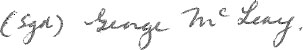 (Sgd) George McLeay.